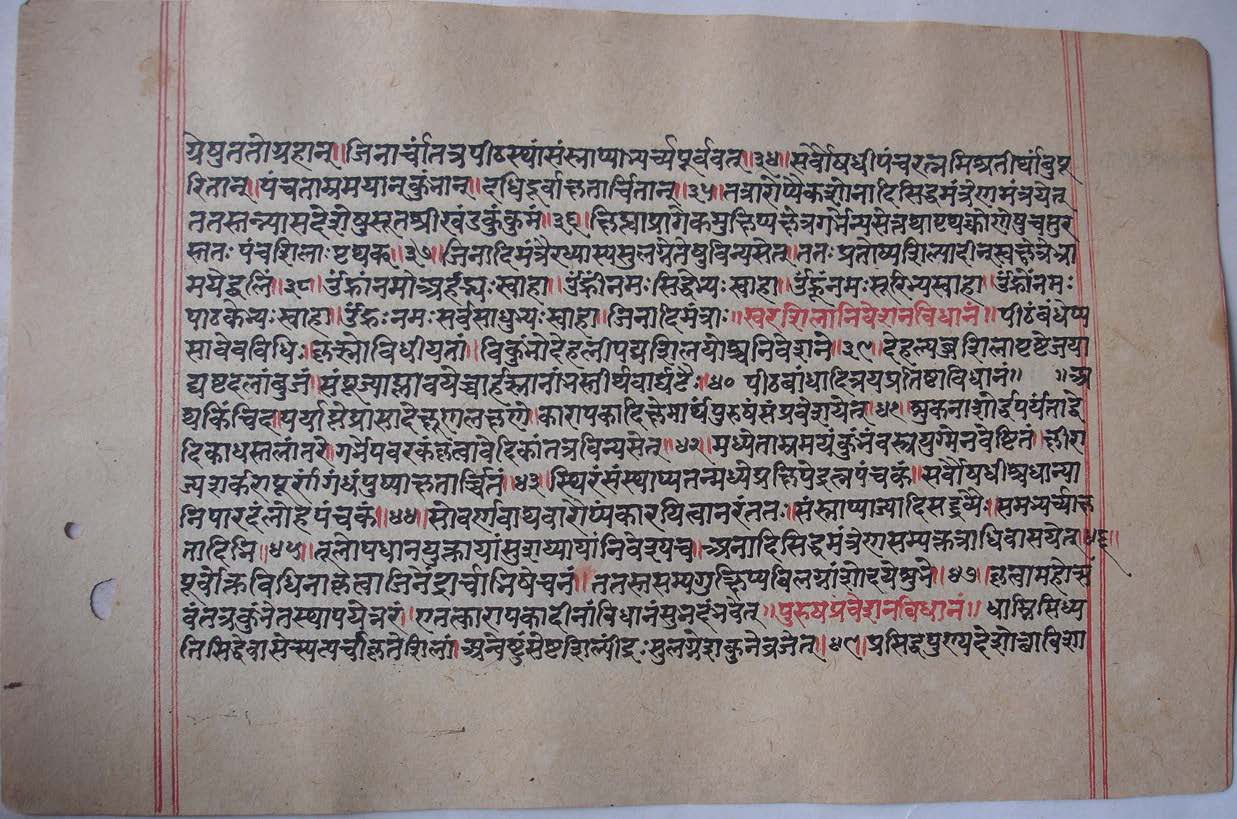 ग्रेषुततोग्रहान्॥जिनार्चांतत्रपीठस्थांसंस्नाप्याभ्यर्च्यपूर्ववत्॥३४॥सर्वौषधीपंचरत्नमिश्रतीर्थांबुपू
रितान्॥पंचताम्रमयान्कुंभान्॥दधिदूर्वाक्षतार्चितान्॥३५॥तत्रारोप्यैकशोनादिसिद्धमंत्रेणमंत्रयेत्
ततस्तन्न्यासदेशेषुसूतश्रीखंडकुंकुमं॥३६॥क्षिप्त्वाप्रागेकमुत्क्षिप्यक्षेत्रगर्भेन्यसेत्तथापृथक्कोणेषुचतुर
स्ततः पंचशिलाः पृथक॥३७॥जिनादिमंत्रैरध्यास्यसुलग्नेतेषुविन्यसेत्॥ततः प्रतोष्यशिल्पादीन्स्वक्षेत्रेभ्रा
मयेद्बलिं॥३८॥उंह्रांनमोअर्हद्भ्यःस्वाहा॥उंह्रींनमःसिद्धेभ्यःस्वाहा॥उंह्रूंनमःसूरिभ्यस्वाहा॥उंह्रौंनमः
पाठकेभ्यःस्वाहा॥उंह्रःनमःसर्वसाधुभ्यःस्वाहा॥जिनादिमंत्राः॥खरशिलानिवेशनविधानं॥पीठबंधेप्य
सावेवविधिः॥कृत्स्नोविधीयतां॥विकुंभोदेहलीपद्मशिलयोश्चनिवेशने॥३९॥देहल्यब्जशिलापृष्टेजया
द्यष्टदलांबुजं॥संपूज्याप्लावयेच्चार्हत्स्नानांभस्तीर्थवार्घटैः॥४० पीठबांधादित्रयप्रतिष्टाविधानं॥ ॥अ
द्यकिंचिदपर्याप्तेप्रासादेक्षूणलक्षणे॥कारापकादिक्षेमार्थंपुरुषंसंप्रवेशयेत्॥४१॥शुकनाशोर्द्धपर्यंताद्वे
दिकाधस्तलांतरे॥गर्भेपवरकंकृत्वावेदिकांतत्रविन्यसेत्॥४२॥मध्येताम्रमयंकुंभंवस्त्रयुग्मेनवेष्टितं॥क्षीरा
ज्यशर्करापूर्णंगंधंपुष्पाक्षतार्च्चितं॥४३॥स्थिरंसंस्थाप्यतन्मध्येप्रक्षिपेद्रत्नपंचकं॥सर्वौषधीश्चधान्या
निपारदंलोहपंचकं॥४४॥सौवर्णंवाथवारौप्यंकारयित्वानरंततः॥संस्नाप्याज्यादिसद्द्रव्यैः॥समभ्यर्च्याक्ष
तादिभि॥४५॥तूलोपधानयुक्तायांसुशय्यायांनिवेश्यच॥अनादिसिद्धमंत्रेणसम्यक्तत्राधिवासयेत्॥४६॥
पूर्वोक्तविधिनाकृत्वाजिनेंद्रार्चाभिषेचनं॥ततस्तंसम्यगुत्क्षिप्यबिलग्नांशोदयेशुभे॥४७॥कृत्वामहोत्स
वंतत्रकुंभेतंस्थापयेन्नरं॥एतत्कारापकादीनांविधानंशुभदंभवेत्॥पुरुषप्रवेशनविधानं॥धाम्निसिध्य
तिसिद्धेवासेत्स्यत्यर्चाकृतेशिलां॥अन्वेष्टुंसेष्टशिल्पींद्रःसुलग्नेशकुनेव्रजेत्॥४९॥प्रसिद्धपुण्यदेशोच्चाविशा